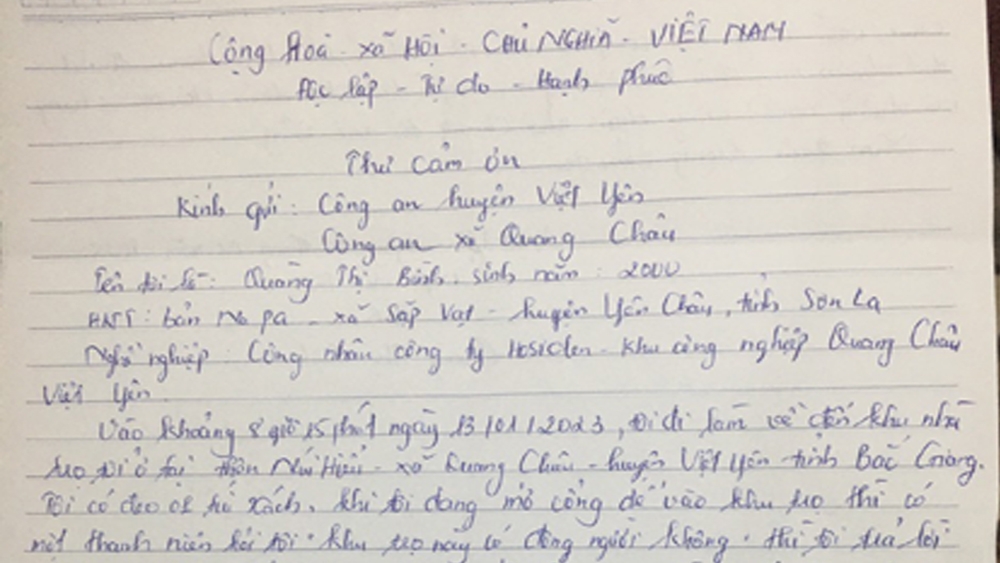 Cộng Hoà - xã Hội - CHỦ NGHĨA - VIỆT NAM
Độc lập - Tự do - Hạnh phúc
Thư cảm ơn
Kính gửi : Công an huyện Việt Yên
Công an xã Quang Châu
Tên tôi là : Quàng Thị Bình, sinh năm : 2000
HKTT : bản Na pa - xã Sặp Vạt - huyện Yên Châu, tỉnh Sơn La
Nghề nghiệp : Công nhân công ty Hosiden - khu công nghiệp Quang Châu
Việt Yên.
Vào khoảng 8 giờ 15 phút ngày 13/01/2023, tôi đi làm về đến khu nhà
trọ tôi ở tại thôn Núi Hiểu - xã Quang Châu - huyện Việt Yên tỉnh Bắc Giang.
Tôi có đeo 01 túi xách, khi tôi đang mở cổng để vào khu trọ thì có
một thanh niên hỏi tôi. khu trọ này có đông người không. thì tôi trả lời